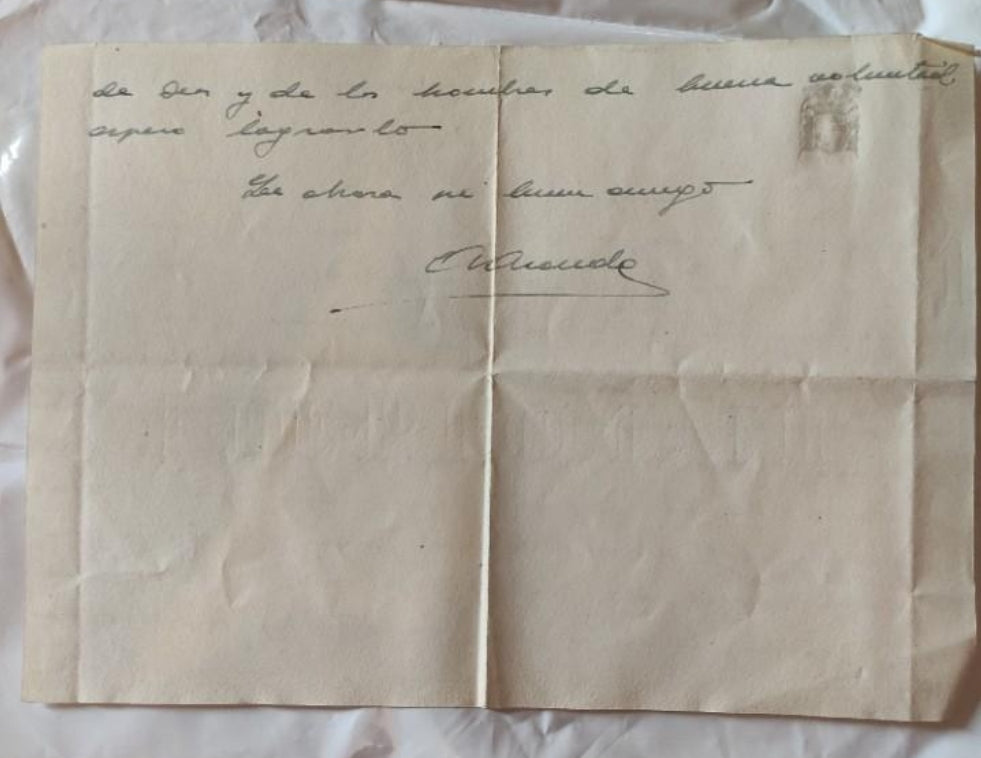 de Dios y de los hombres de buena voluntad
espero lograrlo
buen amigo